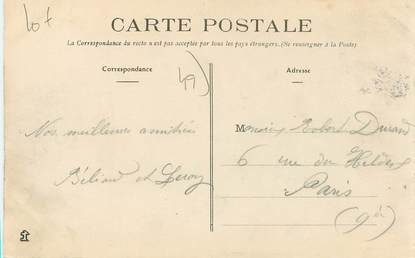 Lot
CARTE POSTALE
La Correspondance du recto n'est pas acceptée par tous les pays étrangers. (Se renseigner à la Poste)
Correspondance
Adresse
Nos meilleures amitiés
Béliard et Leroy
Monsieur Robert Durand
6 rue du Helder
Paris
(9e)